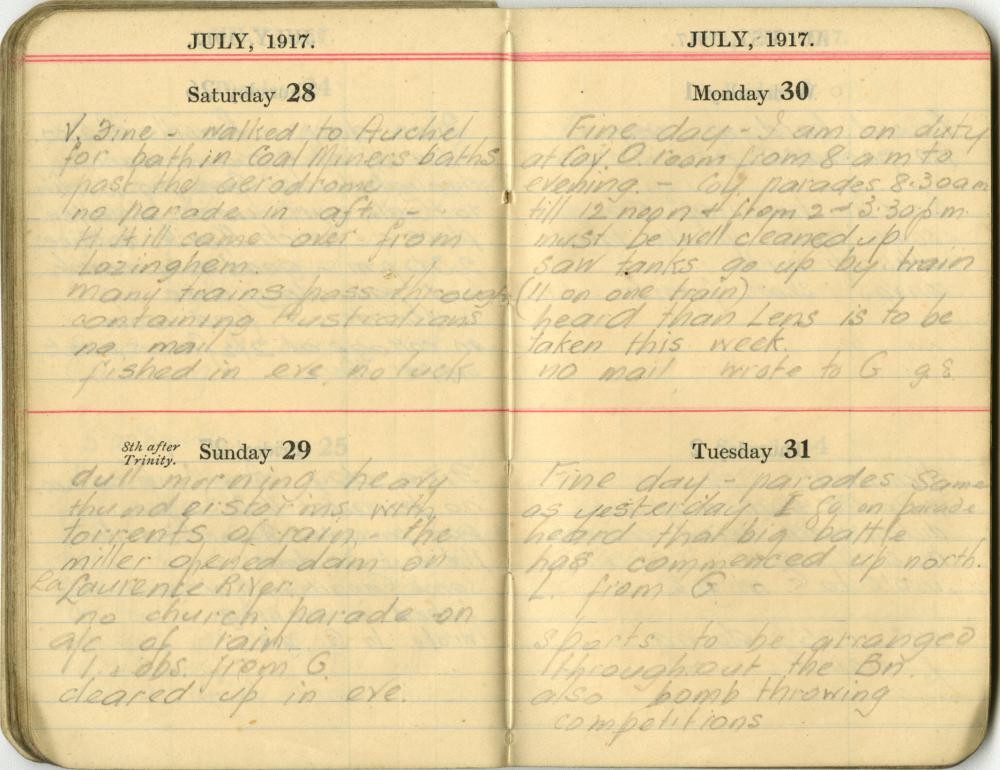 JULY, 1917.
Saturday 28
V. Fine - walked to Auchel
for bath in Coal Miners baths
past the aerodrome
no parade in aft. -
H. Hill came over from
Lozinghem.
many trains pass through
containing Australians
no mail
fished in eve. no luck
8th after Trinity. Sunday 29
dull morning heavy
thunderstorms with
torrents of rain - the
miller opened dam on
La Laurence River.
no church parade on
a/c of rain
obs. from G.
cleared up in eve.
JULY, 1917.
Monday 30
Fine day - I am on duty
at Coy. O. room from 8 a m to
evening. - Coy. parades 8.30am
till 12 noon & from 2 - 3.30 p.m.
must be well cleaned up
saw tanks go up by train
(11 on one train)
heard than Lens is to be
taken this week.
no mail wrote to G
Tuesday 31
Fine day - parades same
as yesterday. I go on parade
heard that big battle
has commenced up north.
L. from G.
sports to be arranged
throughout the Bn.
also bomb throwing
competitions